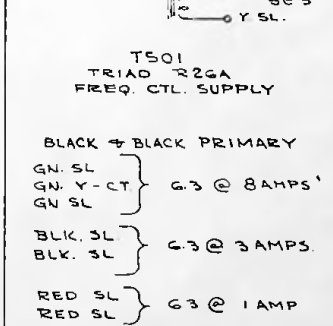 Y SL.
T501
TRIAD R26A
FREQ. CTL. SUPPLY
BLACK & BLACK PRIMARY
GN. SL
GN. Y-CT
GN SL
6.3 @ 8 AMPS'
BLK. SL.
BLK. SL
6.3 @ 3 AMPS.
RED SL
RED SL
6 3 @ 1 AMP